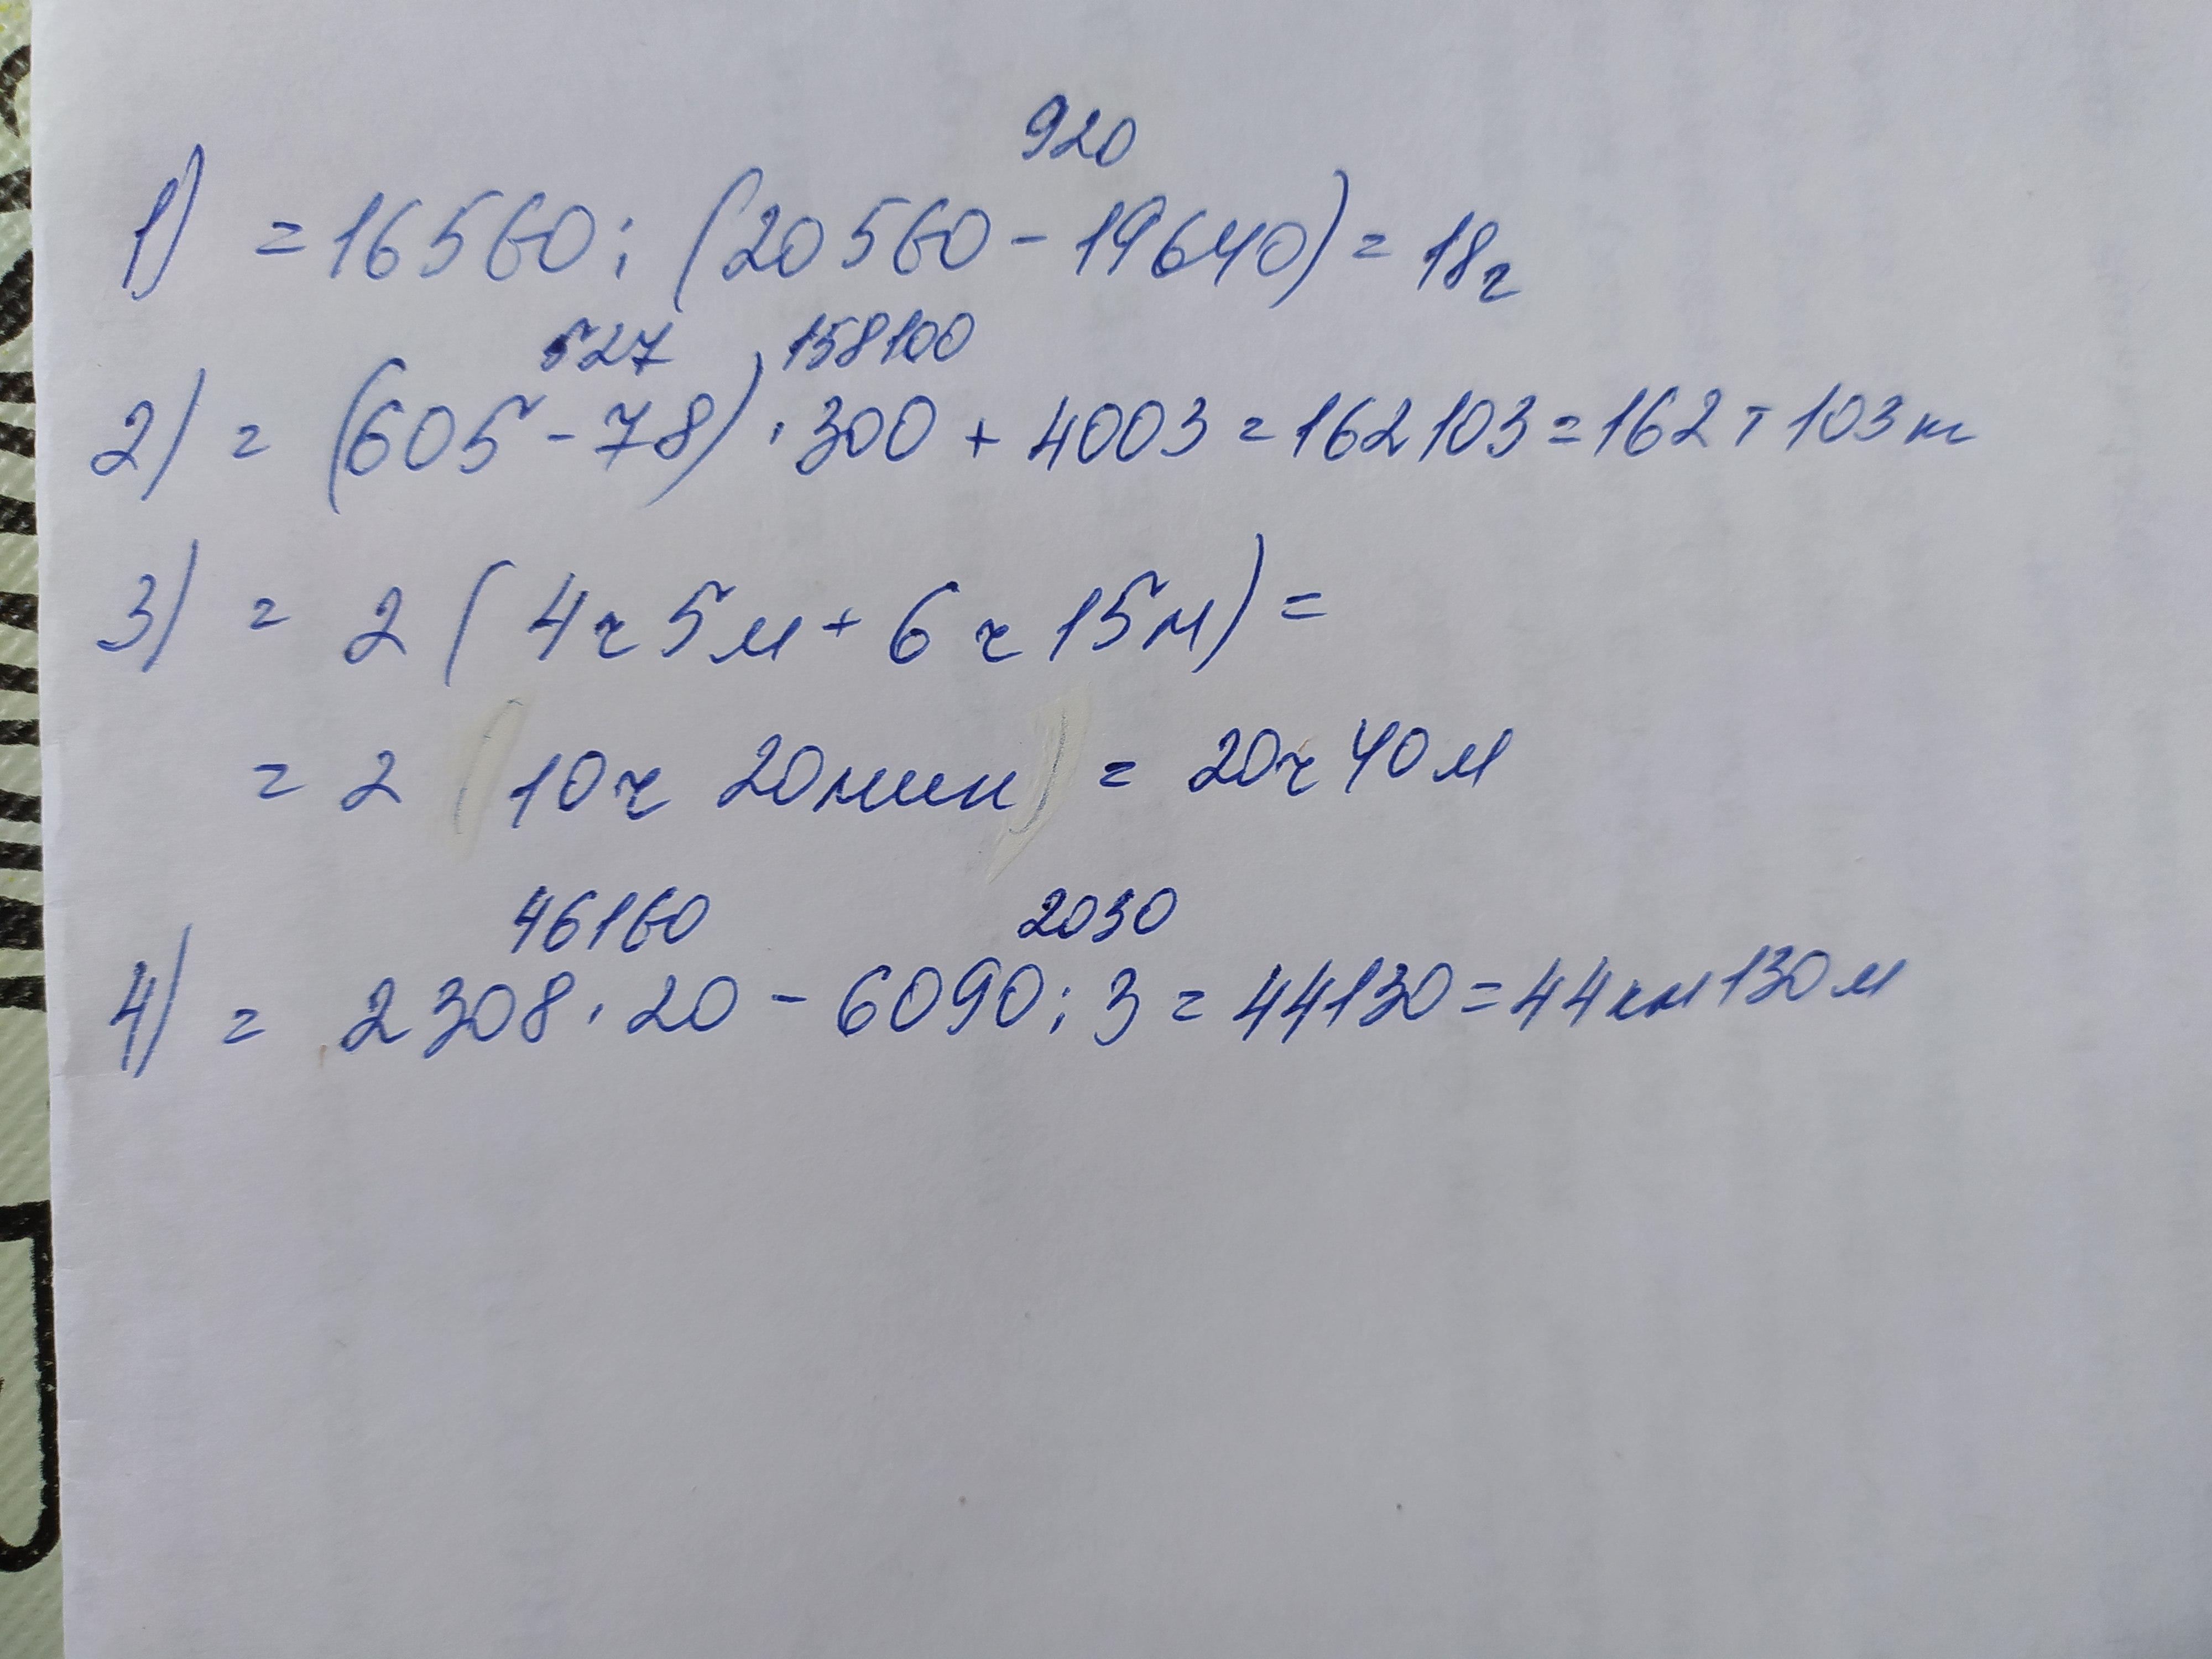 920
1) = 16560 : (20560 - 19640) = 18г
527 158100
2) = (605 - 78) · 300 + 4003 = 162103 = 162 т 103 кг
3) = 2 ( 4ч 5м + 6 ч 15м) =
= 2 ( 10ч 20мин) = 20ч 40м
46160 2030
4) = 2308 · 20 - 6090 : 3 = 44130 = 44км 130м